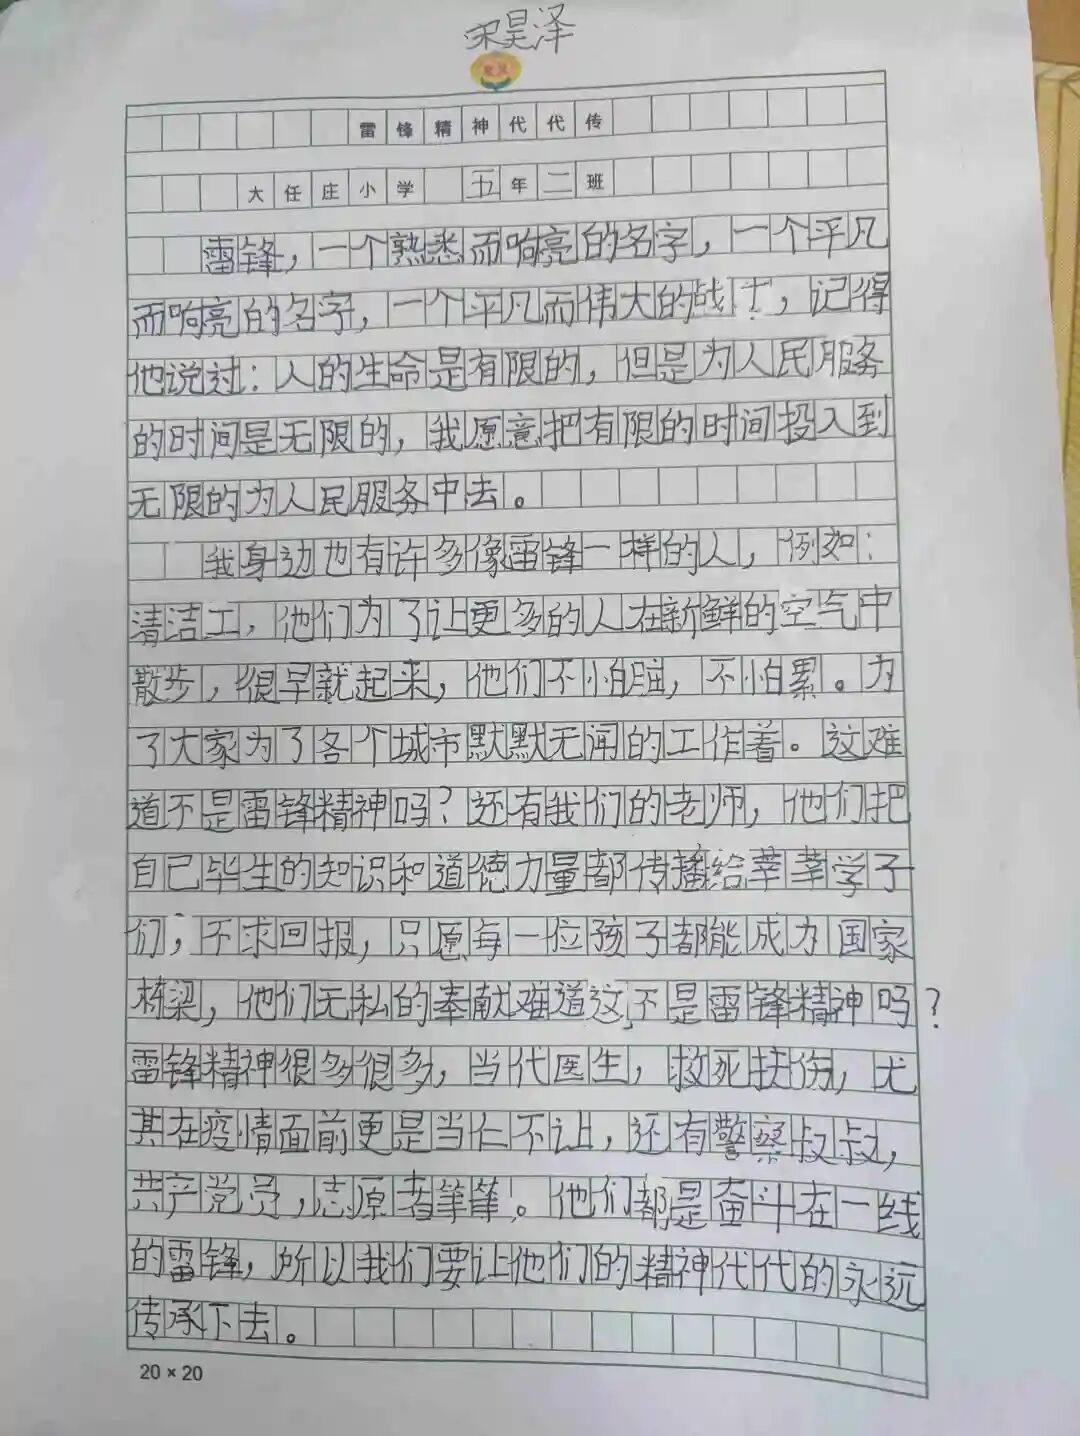 宋昊泽
雷锋精神代代传
大任庄小学 五年二班
雷锋，一个熟悉而响亮的名字，一个平凡
而响亮的名字，一个平凡而伟大的战士，记得
他说过：人的生命是有限的，但是为人民服务
的时间是无限的，我愿意把有限的时间投入到
无限的为人民服务中去。
我身边也有许多像雷锋一样的人，例如：
清洁工，他们为了让更多的人在新鲜的空气中
散步，很早就起来，他们不怕脏，不怕累。为
了大家为了各个城市默默无闻的工作着。这难
道不是雷锋精神吗？还有我们的老师，他们把
自己毕生的知识和道德力量都传播给莘莘学子
们；不求回报，只愿每一位孩子都能成为国家
栋梁，他们无私的奉献难道这不是雷锋精神吗？
雷锋精神很多很多，当代医生，救死扶伤，尤
其在疫情面前更是当仁不让，还有警察叔叔，
共产党员，志原者等等。他们都是奋斗在一线
的雷锋，所以我们要让他们的精神代代的永远
传承下去。
20×20